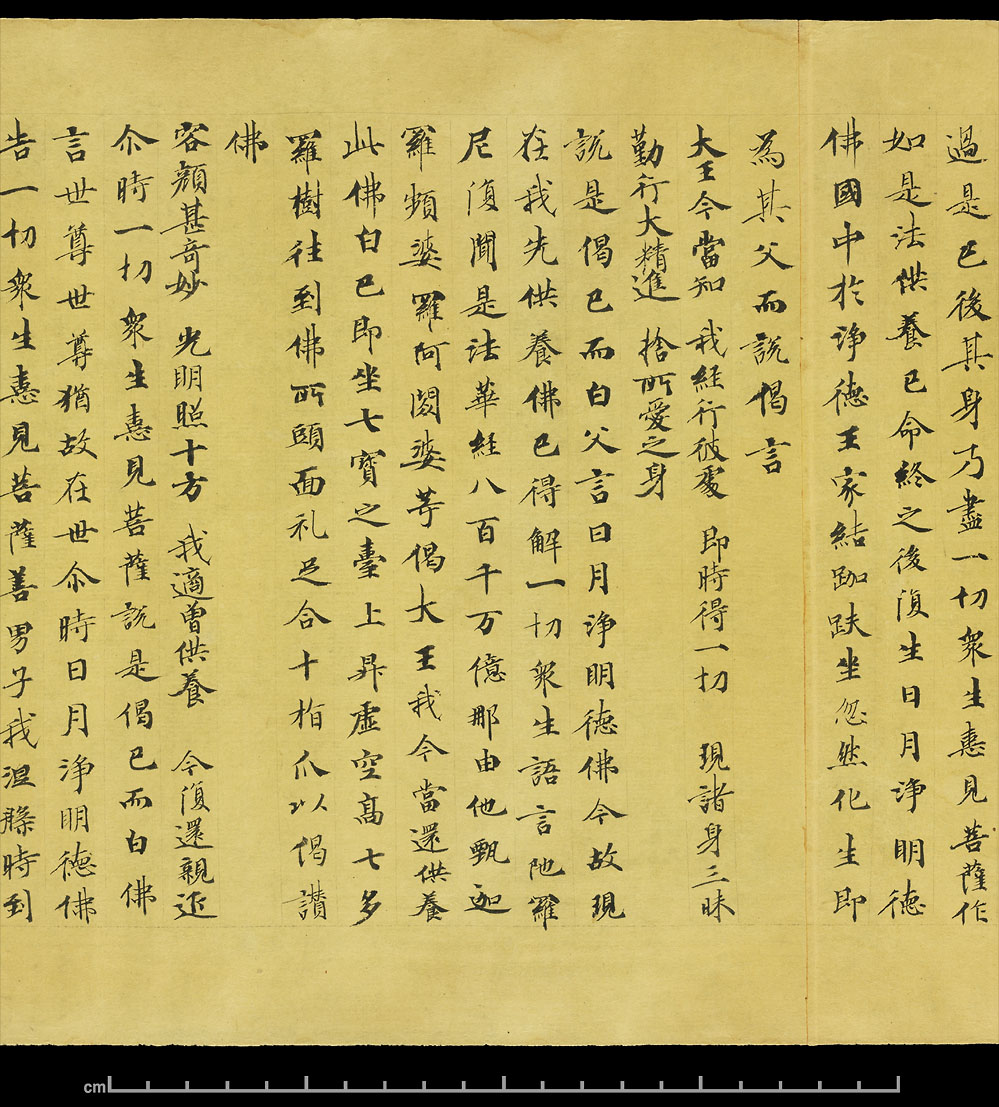 過是已後其身乃盡一切衆生憙見菩薩作
如是法供養已命終之後復生日月淨明德
佛國中於淨德王家結跏趺坐忽然化生即
為其父而說偈言
大王今當知　我經行彼處　即時得一切　現諸身三昧
勤行大精進　捨所愛之身
說是偈已而白父言日月淨明德佛今故現
在我先供養佛已得解一切衆生語言陁羅
尼復聞是法華經八百千万億那由他甄迦
羅頻婆羅阿閦婆等偈大王我今當還供養
此佛白已即坐七寶之臺上昇虛空高七多
羅樹往到佛所頭面礼足合十栺爪以偈讃
佛
容顏甚奇妙　光明照十方　我適曾供養　今復還親近
尒時一切衆生憙見菩薩說是偈已而白佛
言世尊世尊猶故在世尒時日月淨明德佛
告一切衆生憙見菩薩善男子我涅槃時到
cm